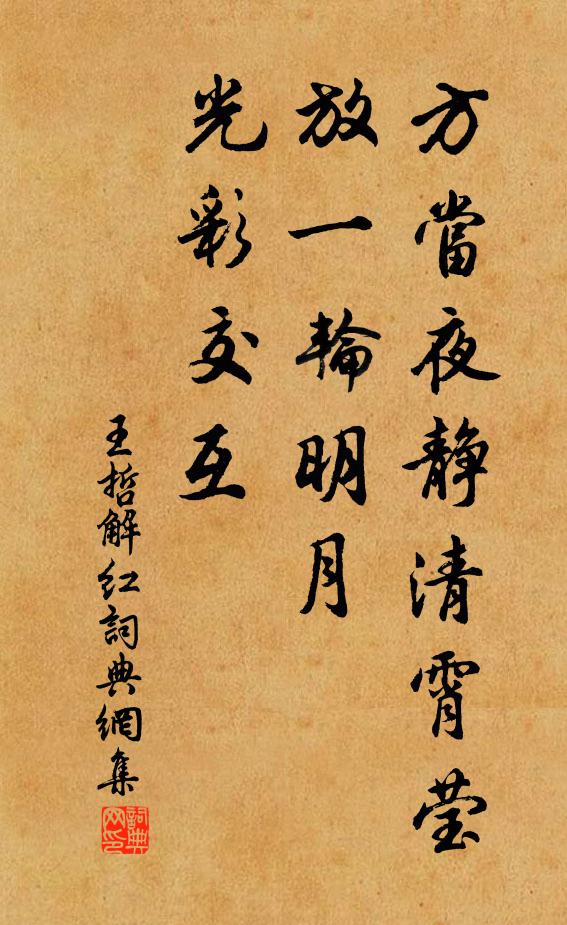 方當夜靜清霄莹
放一輪明月
光彩交互
王哲解红詞典網集
詞典网印